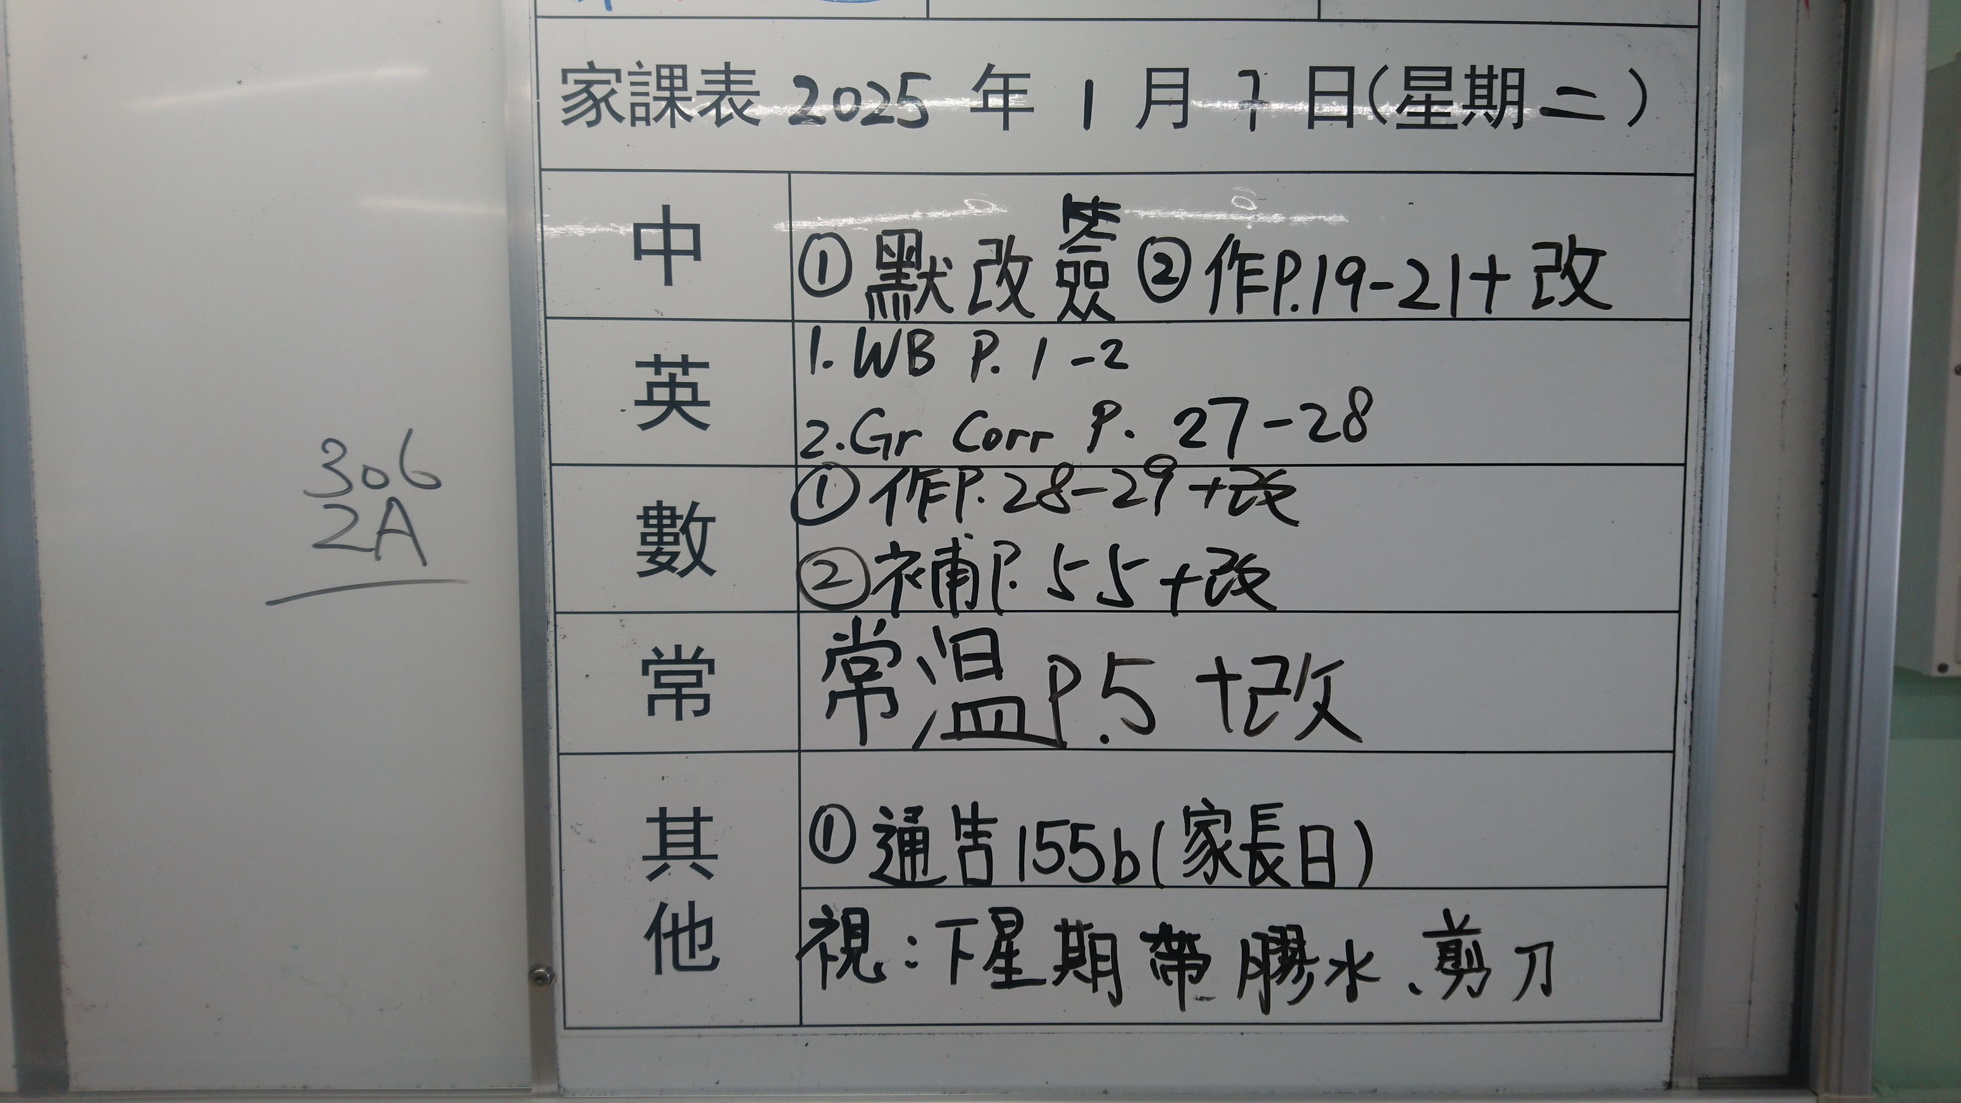 家課表 2025 年 1 月 7 日(星期二)
中
① 默改簽 ② 作P.19-21+改
英
1. WB P. 1-2
2. Gr Corr P. 27-28
306
2A
數
① 作P. 28-29+改
② 補P. 55+改
常
常溫P.5 +改
其他
① 通告155b(家長日)
視:下星期帶膠水、剪刀